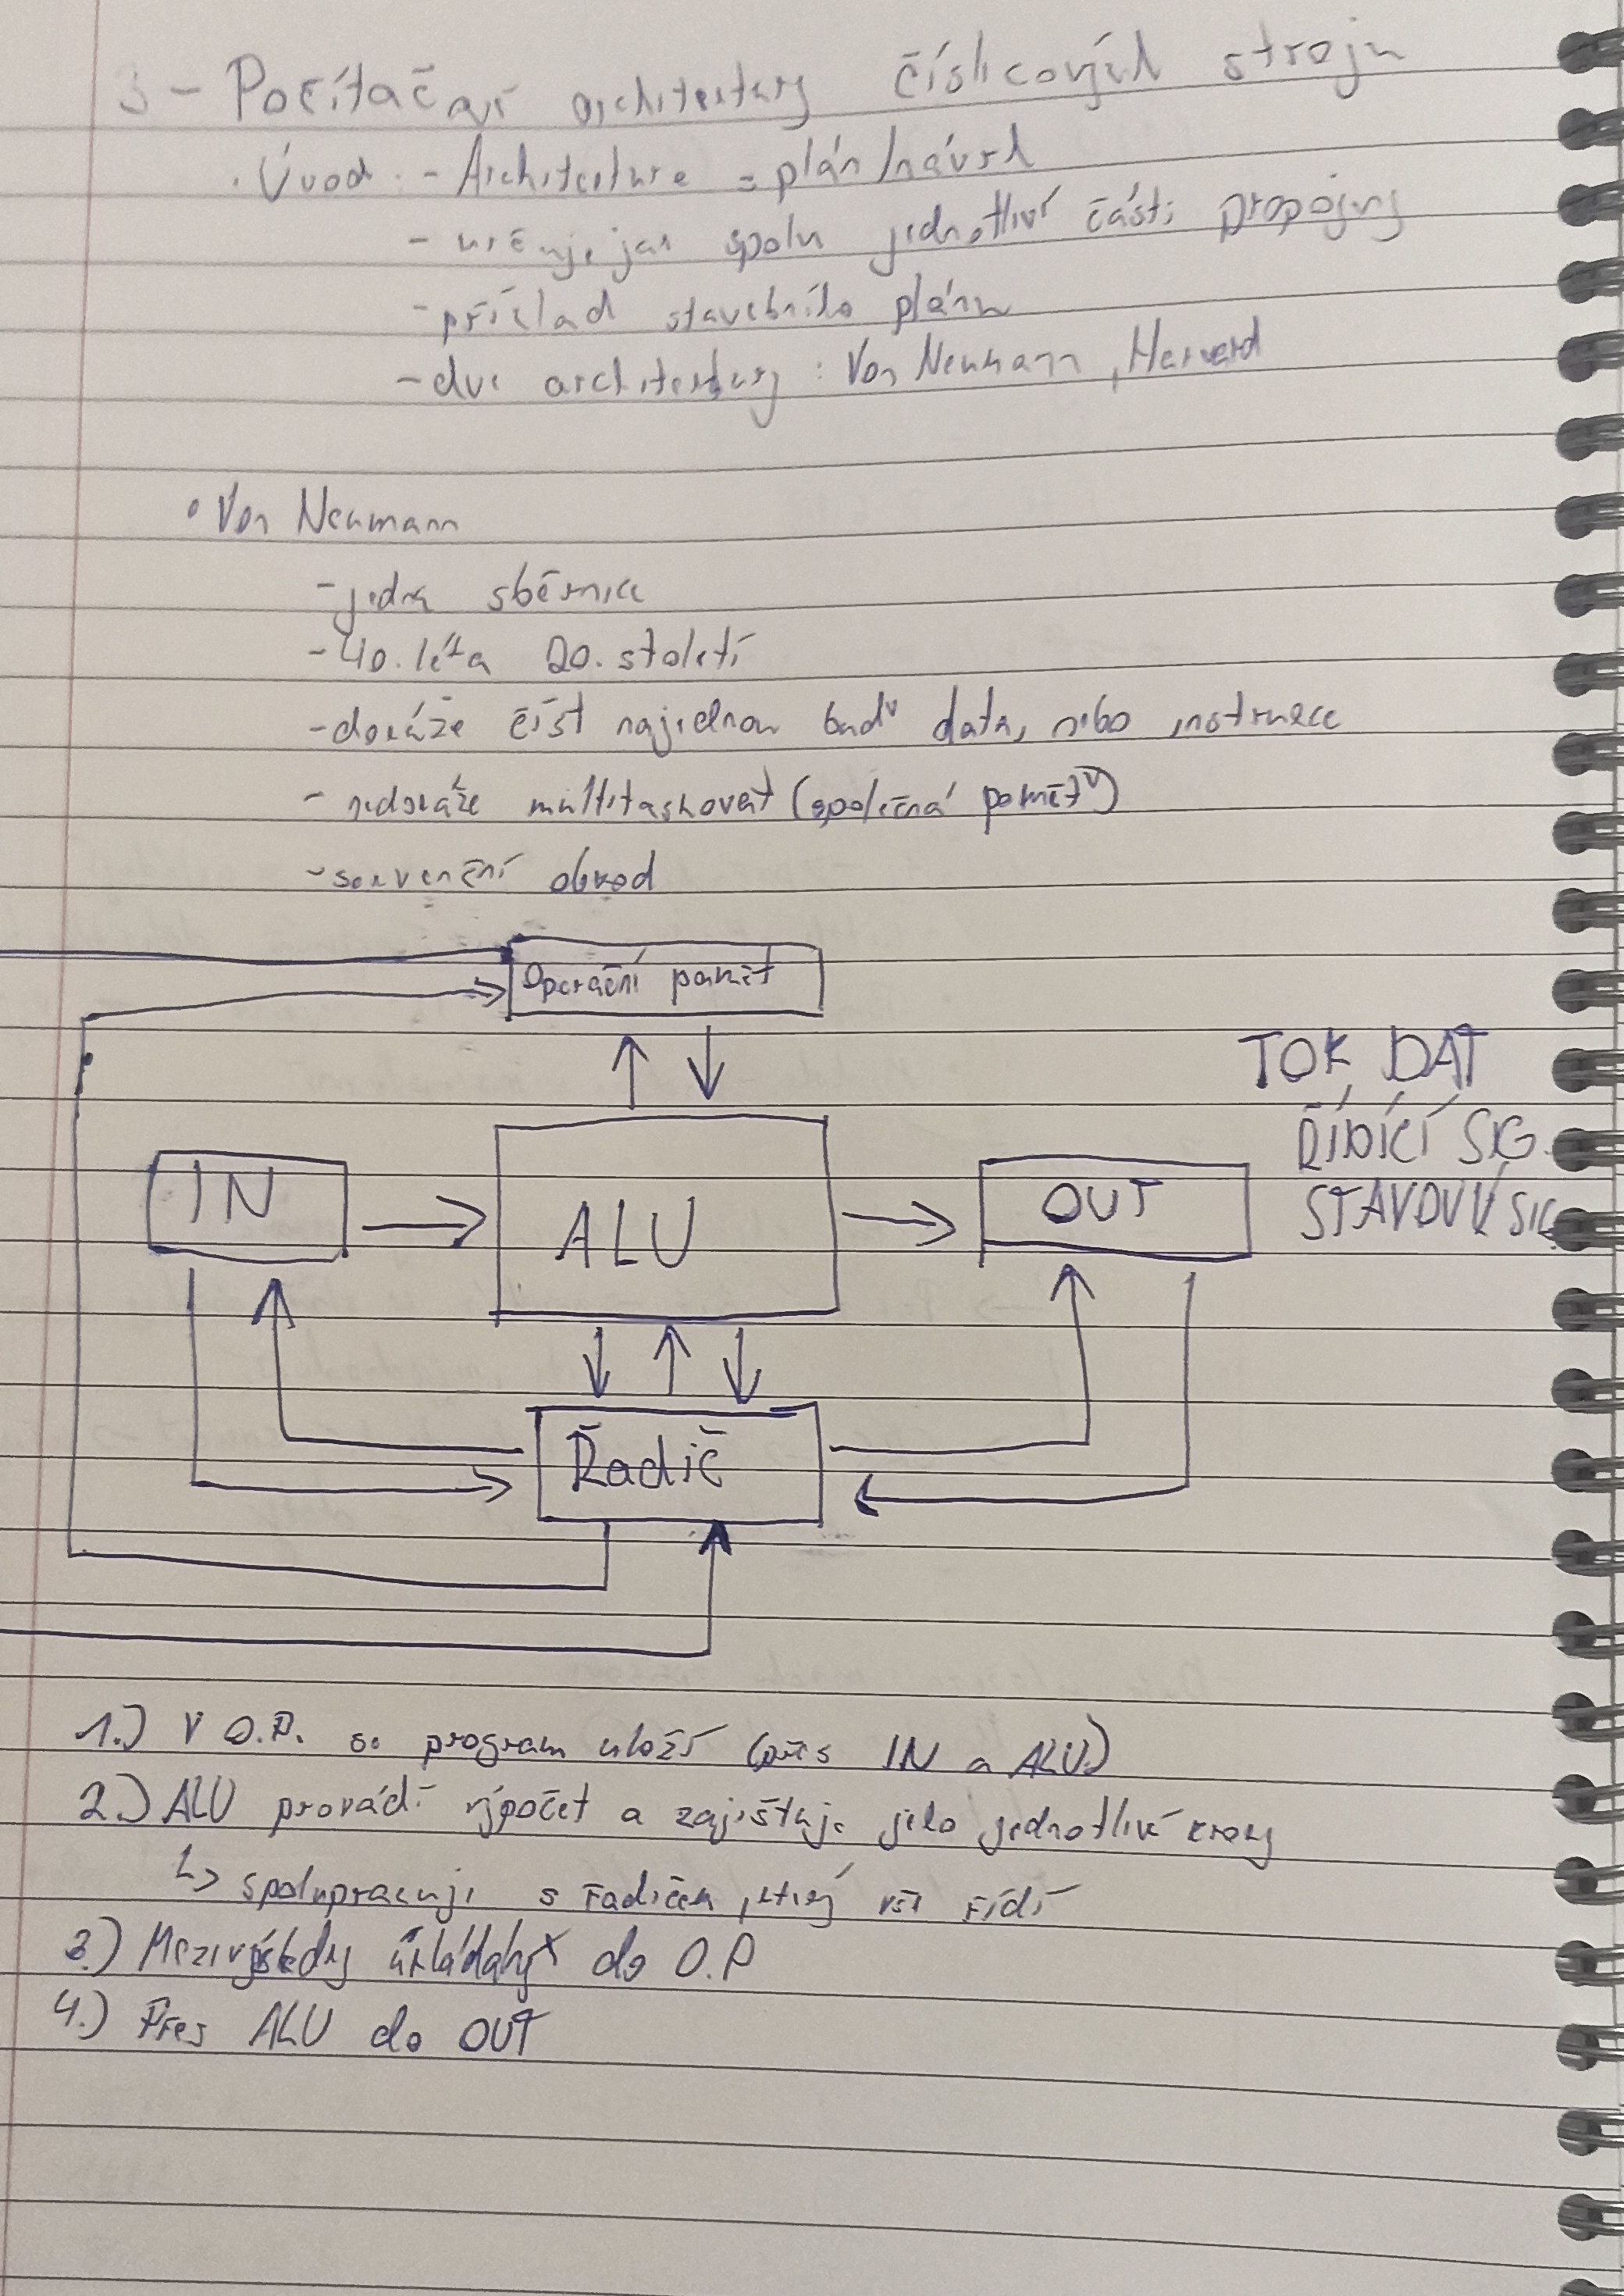 3 - Počítačové architektury číslicových strojů
· Úvod: - Architecture = plán/návrh
- určuje jak spolu jednotlivé části propojeny
- příklad stavebního plánu
- dvě architektury: Von Neumann, Harvard
• Von Neumann
- jedna sběrnice
- 40. léta 20. století
- dokáže číst najednou buďˇ data, nebo instrukce
- nedokáže multitaskovat (společná paměť)
- sekvenční obvod
Operační paměť
TOK DAT
ŘÍDÍCÍ SIG.
STAVOVÝ SIG.
IN
ALU
OUT
Řadič
1.) V O.P. se program uloží (přes IN a ALU)
2.) ALU provádí výpočet a zajištuje jeho jednotlivé kroky
↳ spolupracuje s řadičem, který vše řídí
3.) Mezivýsledky ukládány do O.P
4.) Přes ALU do OUT